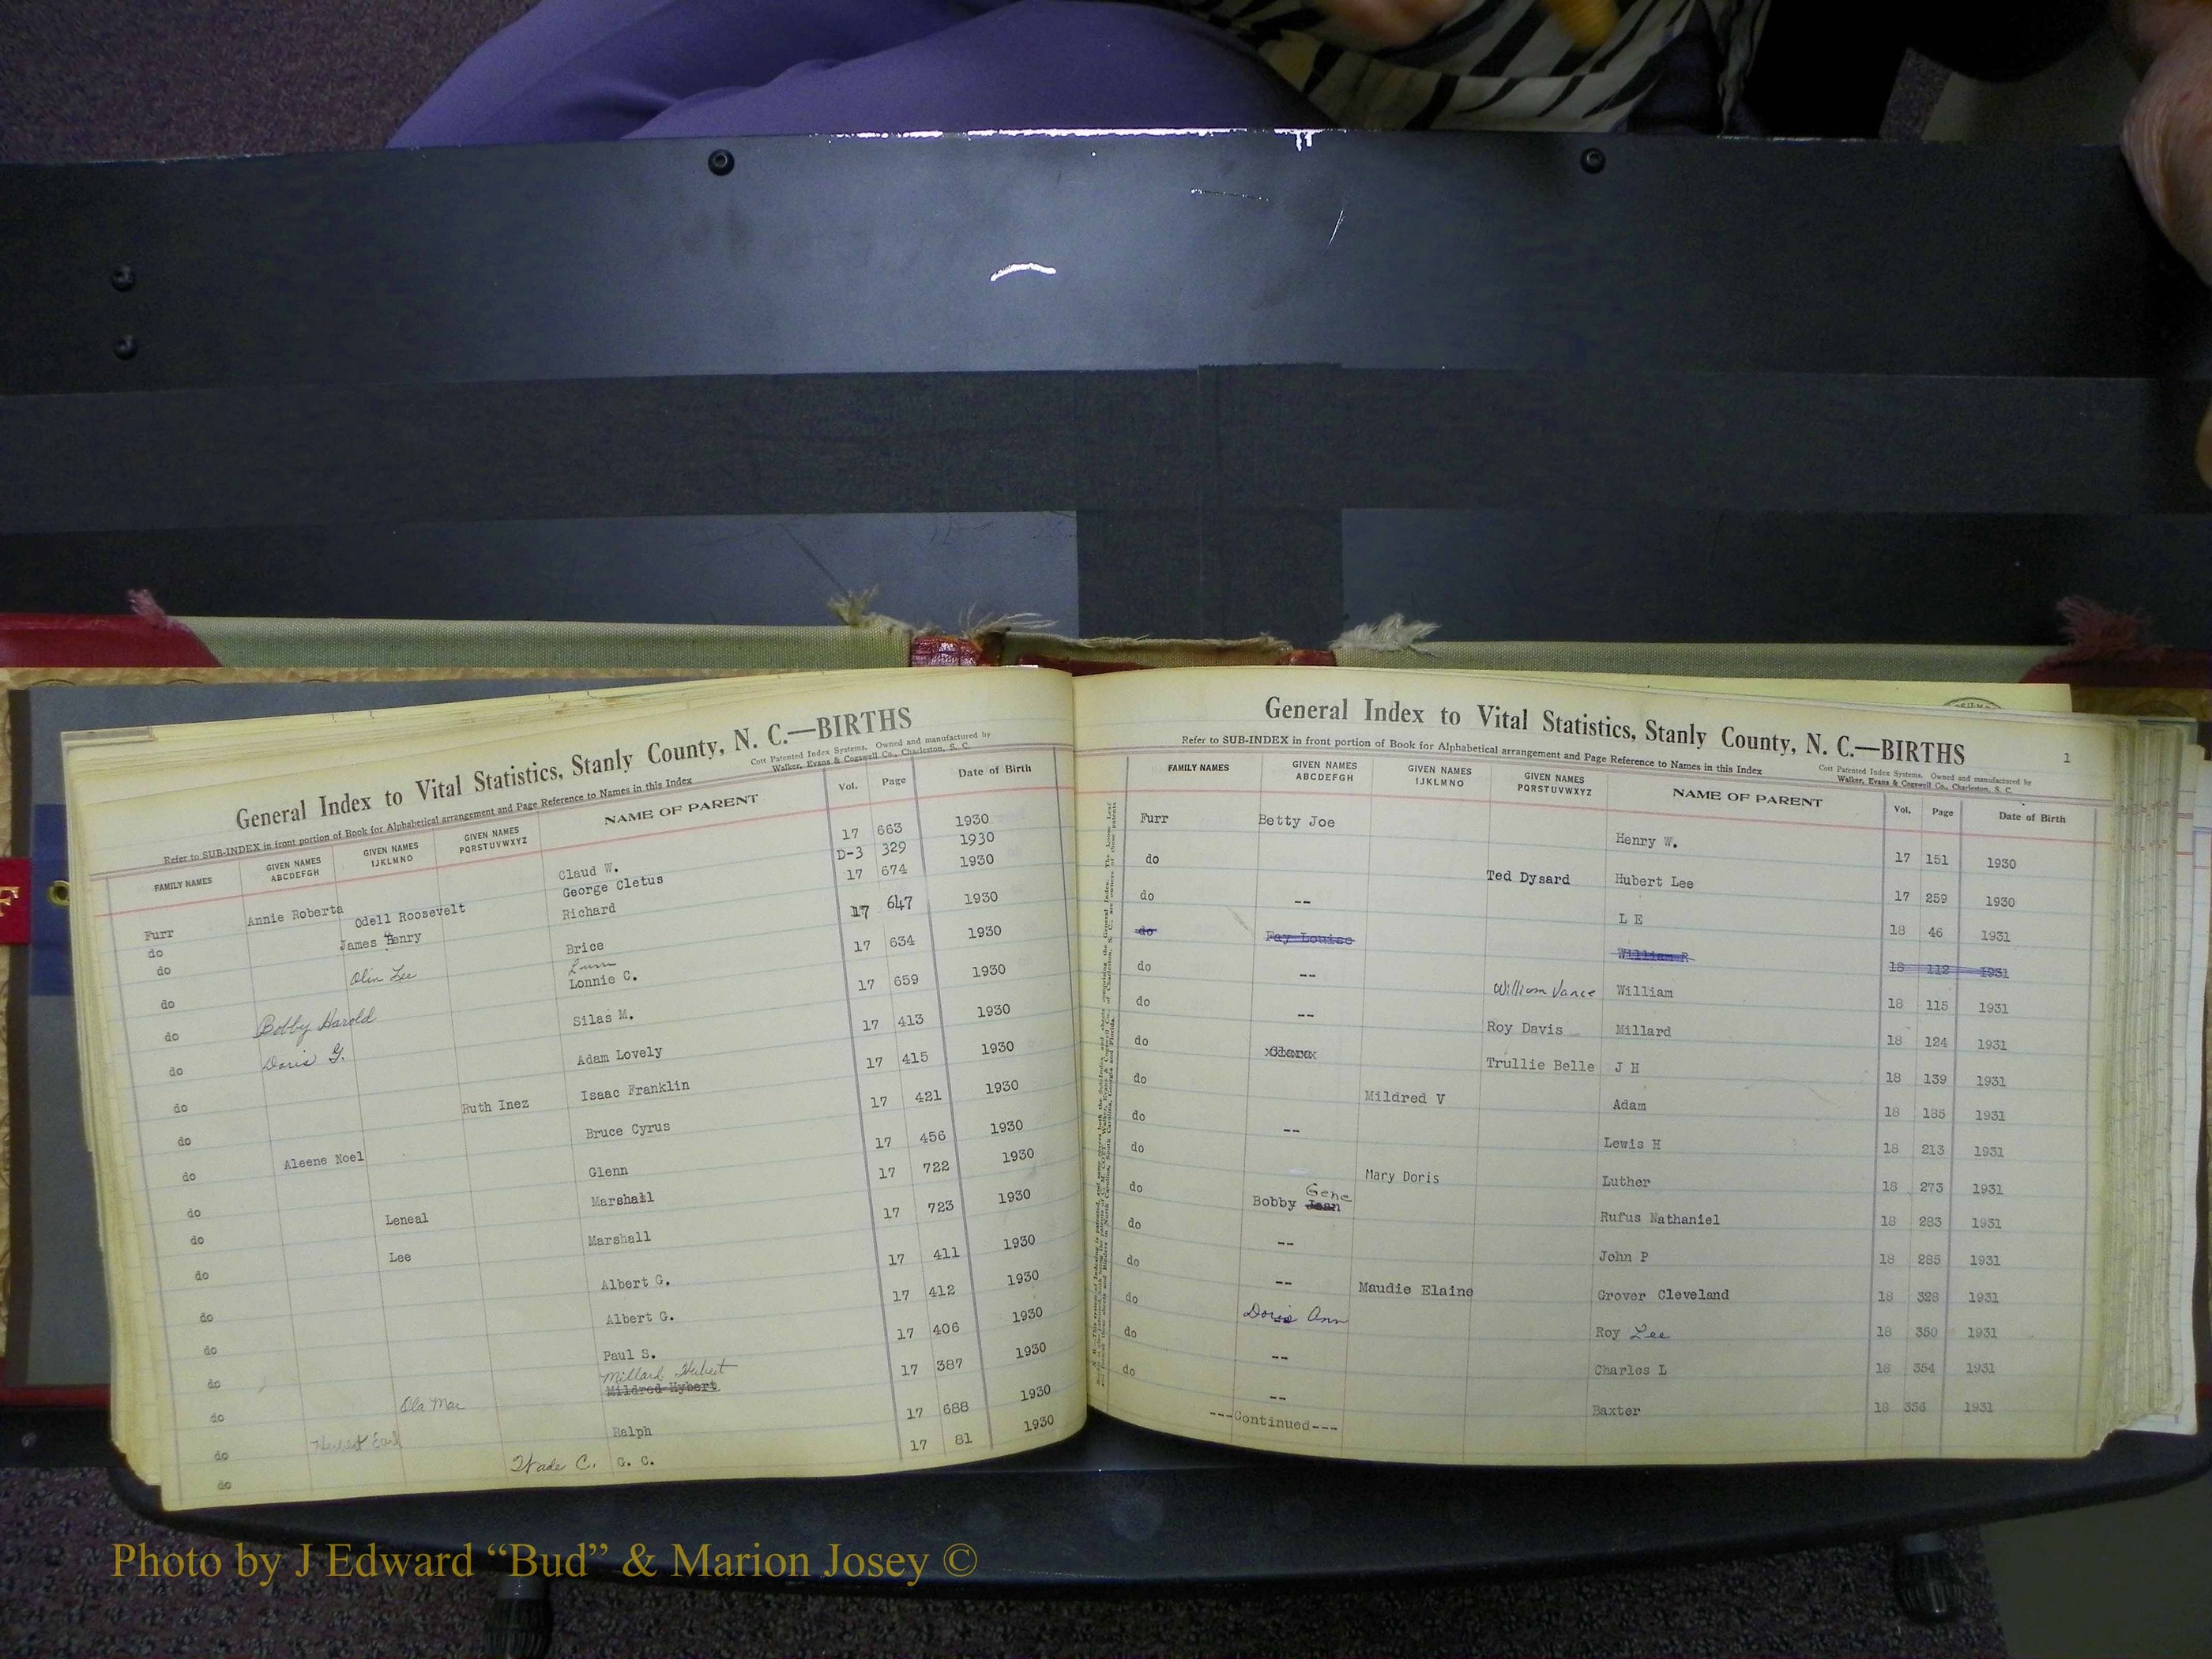 General Index to Vital Statistics, Stanly County, N. C.—BIRTHS
Refer to SUB-INDEX in front portion of Book for Alphabetical arrangement and Page Reference to Names in this Index
Cott Patented Index Systems, Owned and manufactured by
Walker, Evans & Cogswell Co., Charleston, S. C.
FAMILY NAMES GIVEN NAMES ABCDEFGH GIVEN NAMES IJKLMNO GIVEN NAMES PQRSTUVWXYZ NAME OF PARENT Vol. Page Date of Birth
Furr Annie Roberta Claud W. 17 663 1930
do Odell Roosevelt George Cletus D-3 329 1930
do James Henry Richard 17 674 1930
do Olin Lee Brice 17 647 1930
Lum
do Bobby Harold Lonnie C. 17 634 1930
do Doris G. Silas M. 17 659 1930
do Adam Lovely 17 413 1930
do Ruth Inez Isaac Franklin 17 415 1930
do Aleene Noel Bruce Cyrus 17 421 1930
do Glenn 17 456 1930
do Leneal Marshall 17 722 1930
do Lee Marshall 17 723 1930
do Albert G. 17 411 1930
do Albert G. 17 412 1930
do Paul S. 17 406 1930
Millard Hubert
do Ola Mae Mildred Hybert 17 387 1930
do Herbert Earl Ralph 17 688 1930
do Wade C. G. C. 17 81 1930
General Index to Vital Statistics, Stanly County, N. C.—BIRTHS 1
Refer to SUB-INDEX in front portion of Book for Alphabetical arrangement and Page Reference to Names in this Index
Cott Patented Index Systems, Owned and manufactured by
Walker, Evans & Cogswell Co., Charleston, S. C.
FAMILY NAMES GIVEN NAMES ABCDEFGH GIVEN NAMES IJKLMNO GIVEN NAMES PQRSTUVWXYZ NAME OF PARENT Vol. Page Date of Birth
Furr Betty Joe Henry W. 17 151 1930
do Ted Dysard Hubert Lee 17 259 1930
do -- L E 18 46 1931
do Fay Louise William R 18 112 1931
do -- William Vance William 18 115 1931
do -- Roy Davis Millard 18 124 1931
do Trullie Belle J H 18 139 1931
do Mildred V Adam 18 185 1931
do -- Lewis H 18 213 1931
do Mary Doris Luther 18 273 1931
Gene
do Bobby Jean Rufus Nathaniel 18 283 1931
do -- John P 18 285 1931
do -- Maudie Elaine Grover Cleveland 18 328 1931
do Doris Ann Roy Lee 18 350 1931
do -- Charles L 18 354 1931
do -- Baxter 18 356 1931
---Continued---
F
Photo by J Edward “Bud” & Marion Josey ©